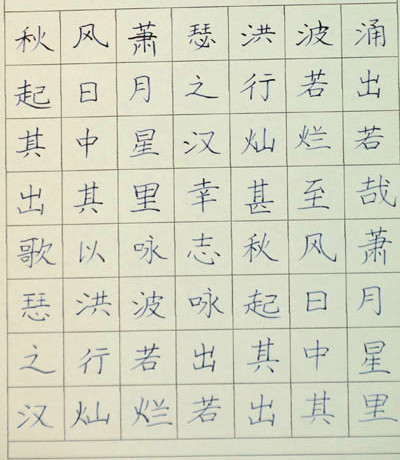 秋风萧瑟洪波涌
起日月之行若出
其中星汉灿烂若
出其里幸甚至哉
歌以咏志秋风萧
瑟洪波咏起日月
之行若出其中星
汉灿烂若出其里